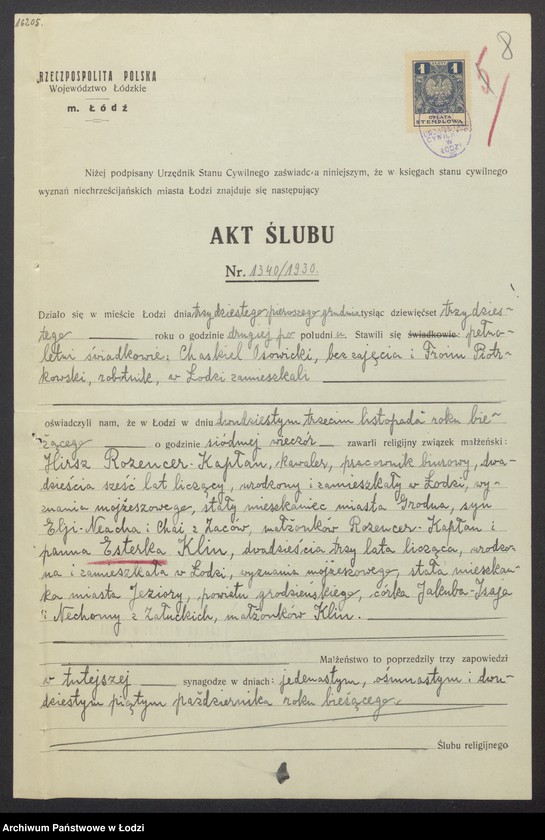 16205.
8
5
RZECZPOSPOLITA POLSKA
Województwo Łódzkie
m. ŁÓDŹ
1 ZŁOTY 1
OPŁATA
STEMPLOWA
CYWIL
W
ŁODZI
Niżej podpisany Urzędnik Stanu Cywilnego zaświadcza niniejszym, że w księgach stanu cywilnego
wyznań niechrześcijańskich miasta Łodzi znajduje się następujący
AKT ŚLUBU
Nr. 1340/1930.
Działo się w mieście Łodzi dnia trzydziestego pierwszego grudnia tysiąc dziewięćset trzydzies-
tego roku o godzinie drugiej po południu. Stawili się świadkowie: pełno-
letni świadkowie: Chaskiel Osowicki, bez zajęcia i Froim Piotr-
kowski, robotnik, w Łodzi zamieszkali
oświadczyli nam, że w Łodzi w dniu dwudziestym trzecim listopada roku bie-
żącego o godzinie siódmej wieczór zawarli religijny związek małżeński:
Hirsz Rozencer-Kapłan, kawaler, pracownik biurowy, dwa-
dzieścia sześć lat liczący, urodzony i zamieszkały w Łodzi, wy-
znania mojżeszowego, stały mieszkaniec miasta Grodna, syn
Elji-Neacha i Chai z Zaców, małżonków Rozencer-Kapłan i
panna Esterka Klin, dwadzieścia trzy lata licząca, urodzo-
na i zamieszkała w Łodzi, wyznania mojżeszowego, stała mieszkan-
ka miasta Jeziory, powiatu grodzieńskiego, córka Jakuba-Isaja
i Nechomy z Załuckich, małżonków Klin.
Małżeństwo to poprzedziły trzy zapowiedzi
w tutejszej synagodze w dniach: jedenastym, ośmnastym i dwu-
dziestym piątym października roku bieżącego.
Ślubu religijnego
Archiwum Państwowe w Łodzi
szukajwarchiwach.gov.pl